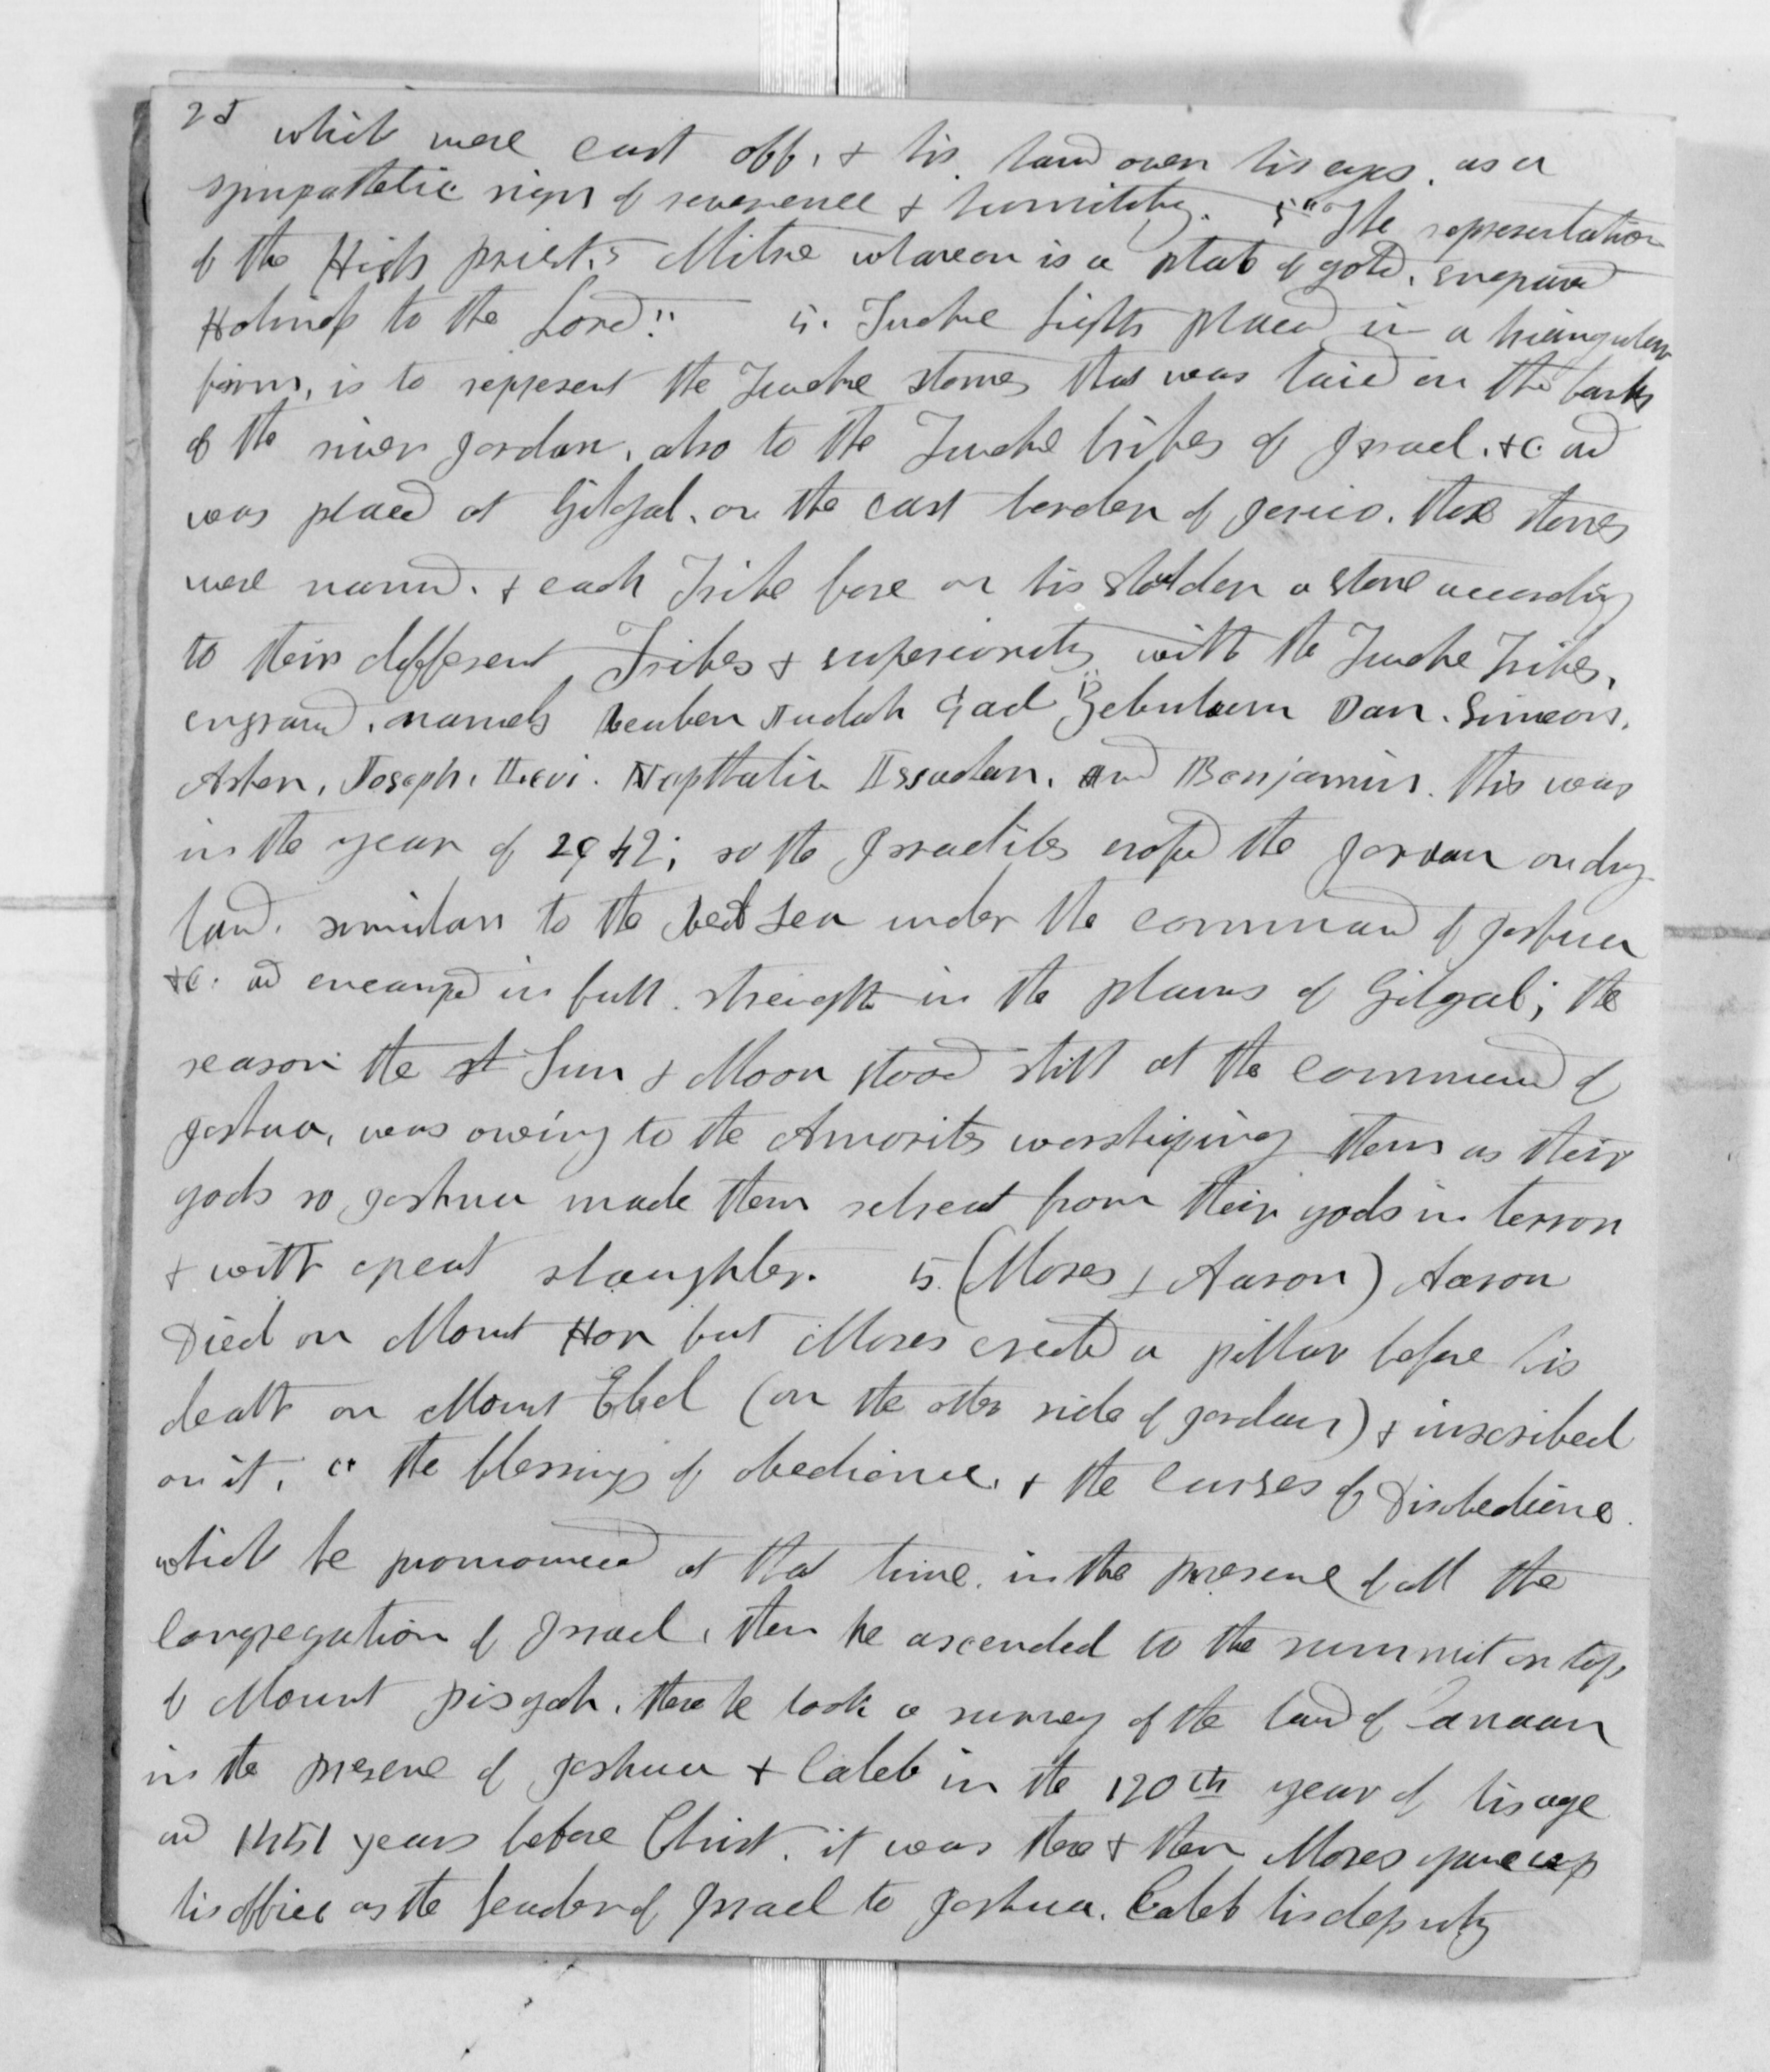 25 which were cast off, & his hand over his eyes, as a
sympathetic sign of reverence & humility. 5" The representation
of the High priest,s Mitre whareon is a plate of gold, engraved
Holiness to the Lord" 5. Twelve Lights placed in a triangular
form, is to represent the Twelve stones that was laid on the banks
of the river Jordan, also to the Twelve tribes of Israel. &c and
was placed at Gilgal, on the east border of Jerico. these stones
were named. & each Tribe bore on his sholder a stone according
to their different Tribes & superiority with the Twelve Tribes,
engraved, namely Reuben Judah Gad Zebulum Dan. Simeon,
Asher, Joseph, Levi. Napthalia Issachar, and Benjamin. this was
in the year of 2942; so the Israelites crossed the Jordan on dry
land, similar to the Red Sea under the command of Joshua
&c. and encamped in full strength in the plains of Gilgal; the
reason the st Sun & Moon stood still at the command of
Joshua, was owing to the Amorites worshiping them as their
gods so Joshua made them retreat from their gods in terror
& with great slaughter. 5. (Moses & Aaron) Aaron
Died on Mount Hor but Moses erected a pillar before his
death on Mount Ebel (on the other side of Jordan) & inscribed
on it, the blessings of obedience, & the Curses of Disobedience.
which he pronounced at that time, in the presence of all the
Congregation of Israel, then he ascended to the summit or top,
of Mount pisgah, there he took a survey of the land of Canaan
in the presence of Joshua & Caleb in the 120th year of his age
and 1451 years before Christ. it was there & then Moses gave up
his office as the leader of Israel to Joshua. Caleb his deputy